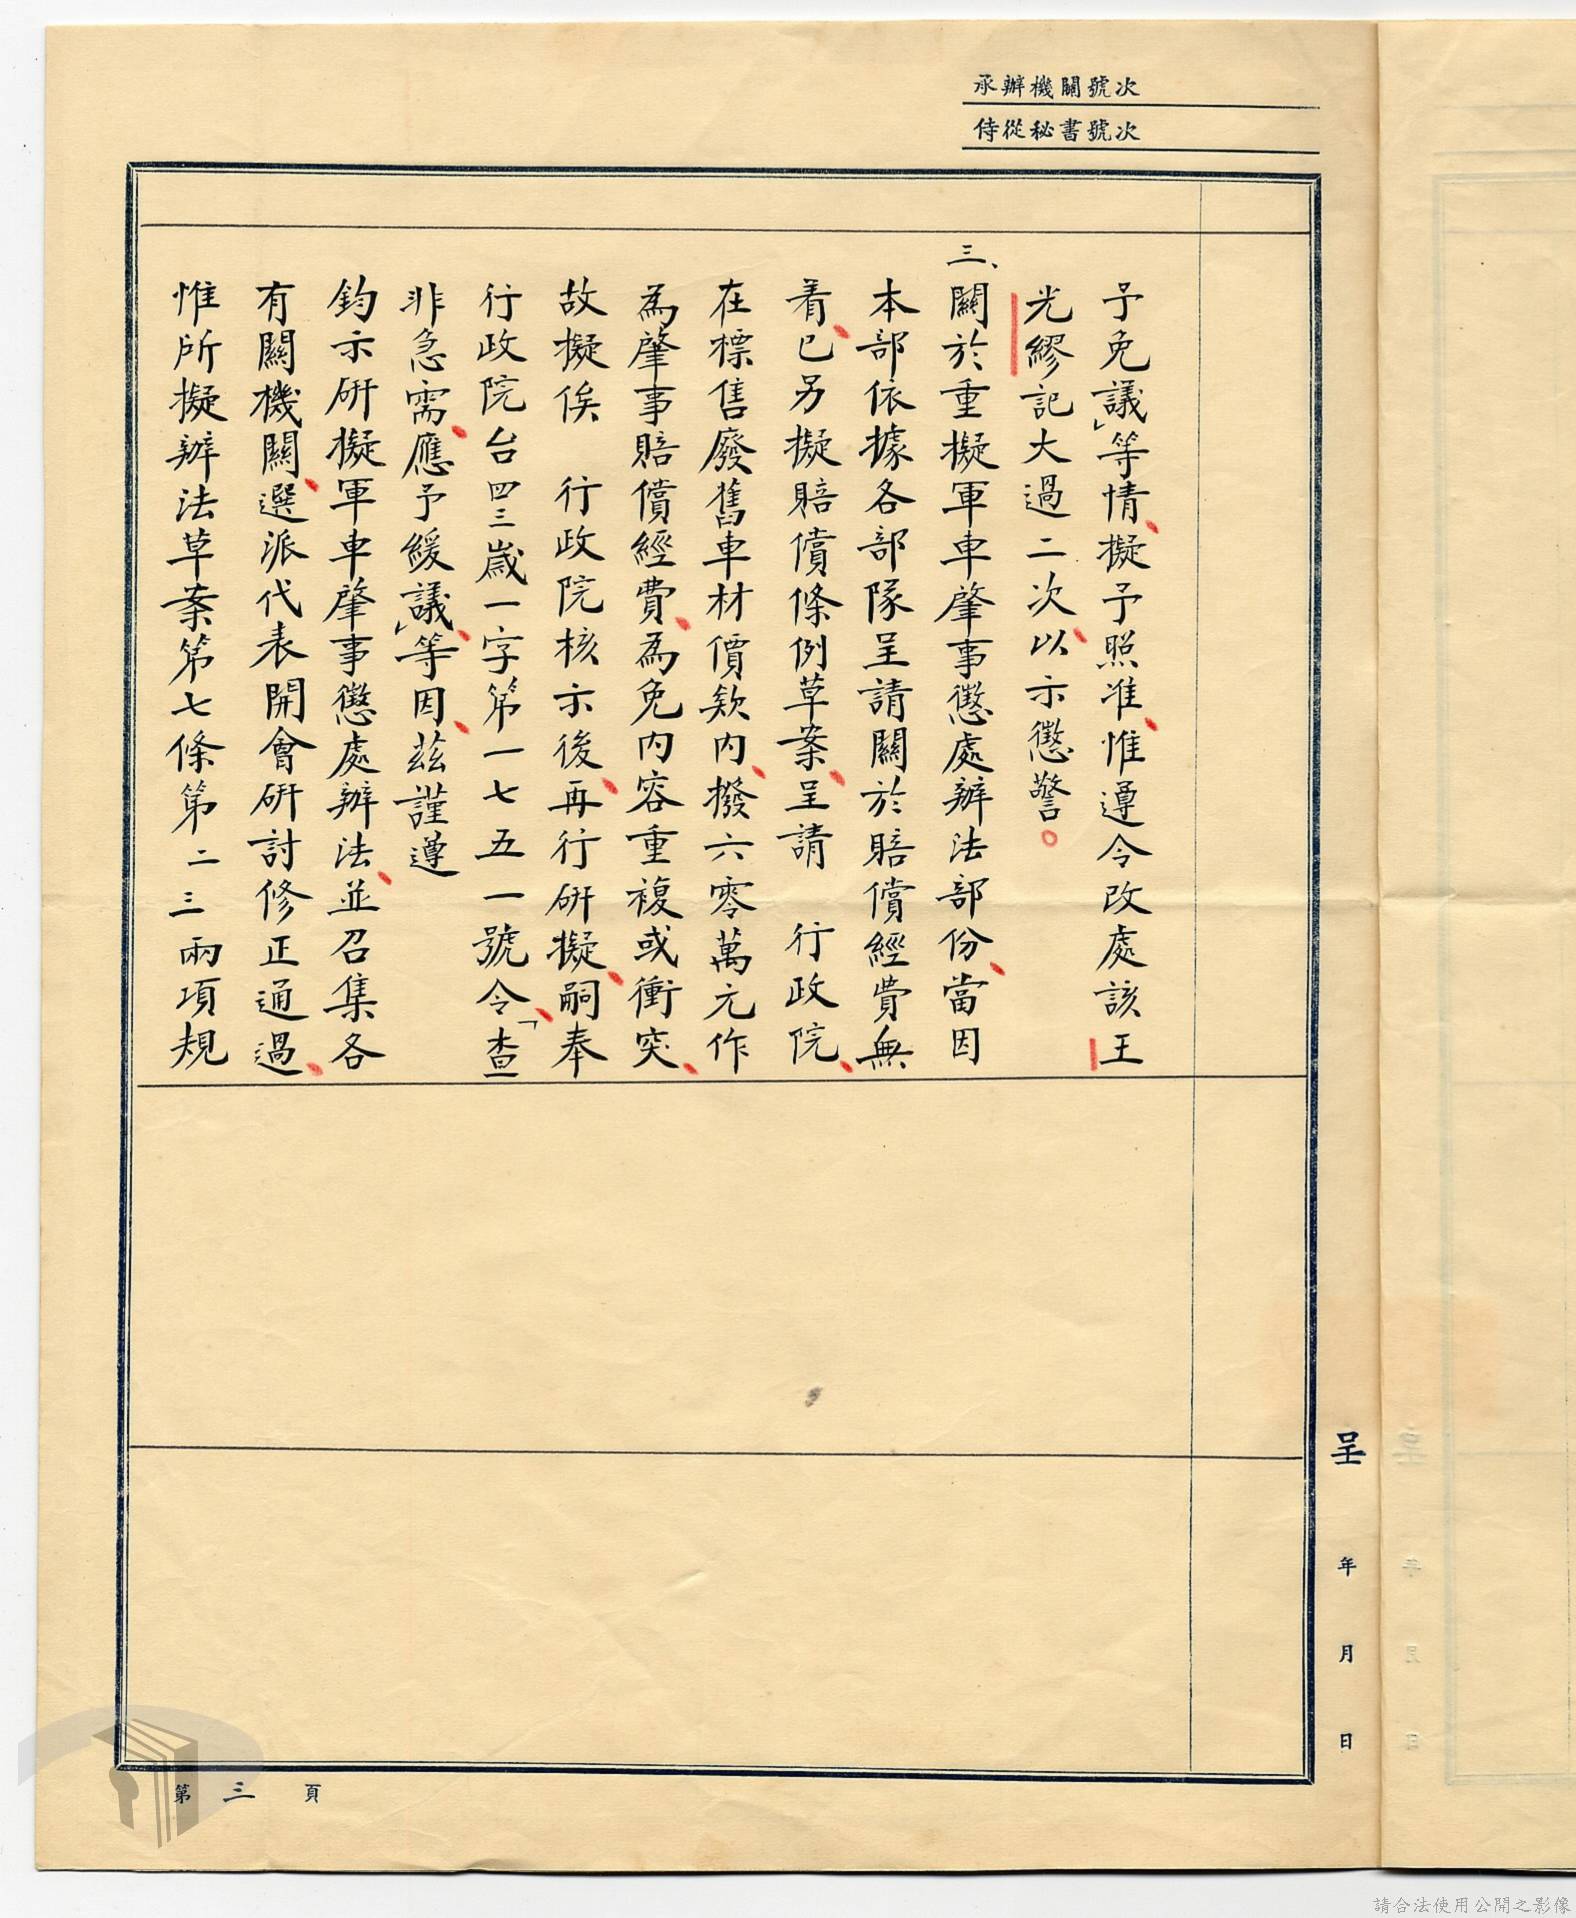 承辦機關號次
侍從秘書號次
予免議」等情、擬予照准、惟遵令改處該王
光繆記大過二次、以示懲警。
三、關於重擬軍車肇事懲處辦法部份、當因
本部依據各部隊呈請關於賠償經費無
着、已另擬賠償條例草案、呈請 行政院、
在標售廢舊車材價款內、撥六零萬元作
為肇事賠償經費、為免內容重複或衝突、
故擬俟 行政院核示後、再行研擬、嗣奉
行政院台四三歲一字第一七五一號令、「查
非急需、應予緩議」、等因、茲謹遵
鈞示研擬軍車肇事懲處辦法、並召集各
有關機關、選派代表開會研討修正通過、
惟所擬辦法草案第七條第二三兩項規
呈 年 月 日
第三頁
請合法使用公開之影像